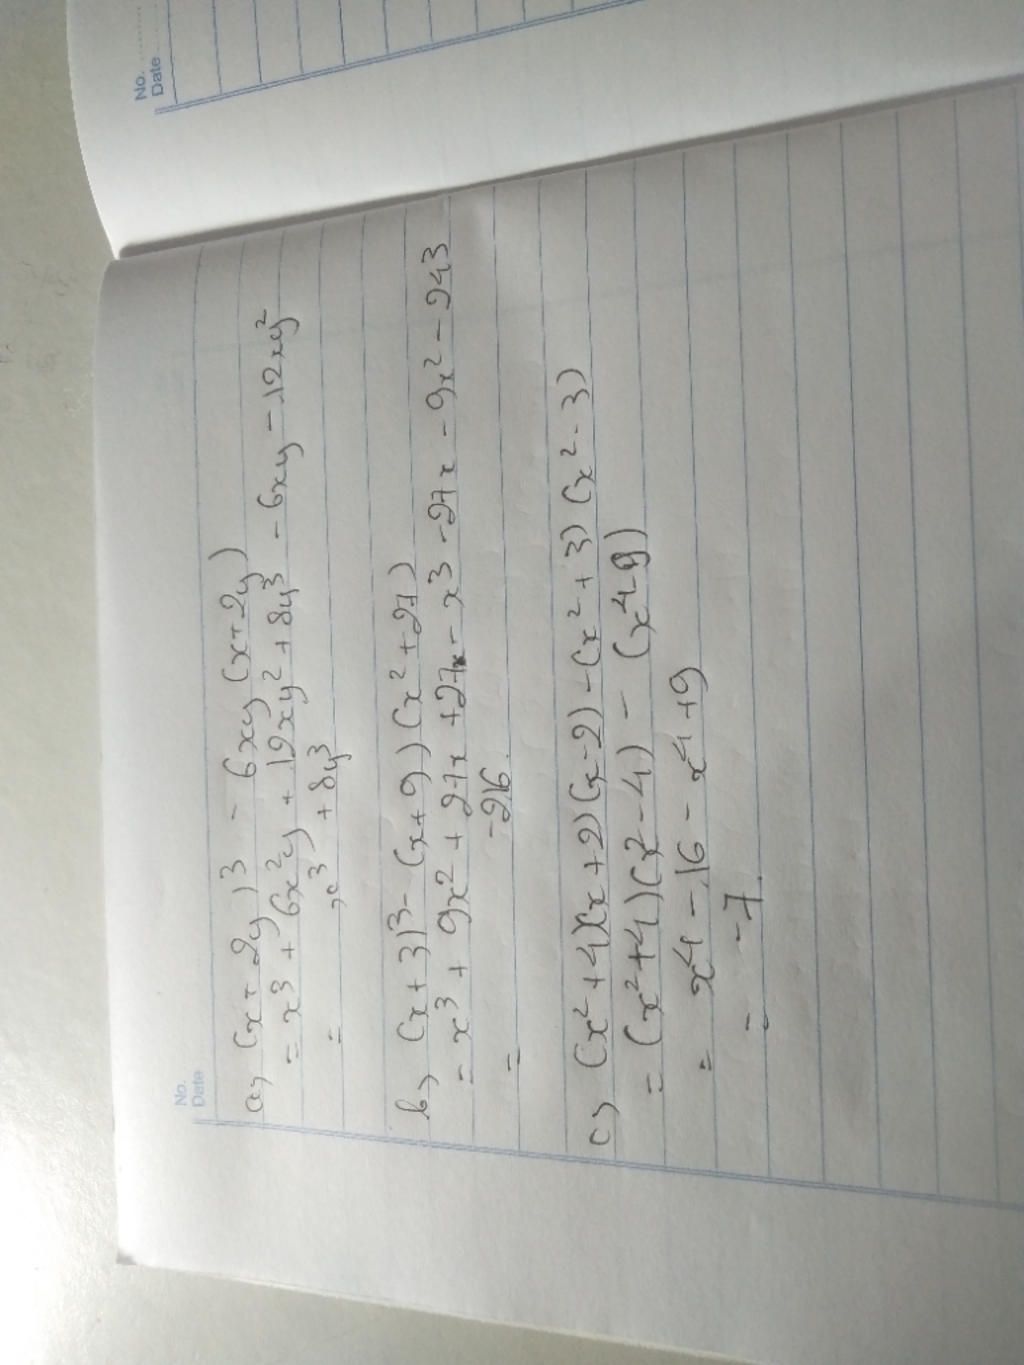 No. ............
Date
No.
Date
a, (x + 2y)³ - 6xy (x + 2y)
= x³ + 6x²y + 12xy² + 8y³ - 6xy - 12xy²
= x³ + 8y³
b, (x + 3)³ - (x + 9)(x² + 27)
= x³ + 9x² + 27x + 27x - x³ - 27x - 9x² - 243
= -216.
c, (x² + 4)(x + 2)(x - 2) - (x² + 3)(x² - 3)
= (x² + 4)(x² - 4) - (x⁴ - 9)
= x⁴ - 16 - x⁴ + 9
= -7.